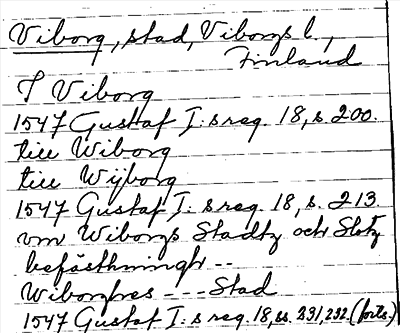 Viborg, stad, Viborgs l.,
Finland
T Viborg
1547 Gustaf I: s reg. 18, s. 200.
till Wiborg
till Wijborg
1547 Gustaf I: s reg. 18, s. 213.
om Wiborgs Stadtz och Slotz
befästhningh --
Wiborghes --- Stad
1547 Gustaf I: s reg. 18, ss. 231, 232. (forts.)